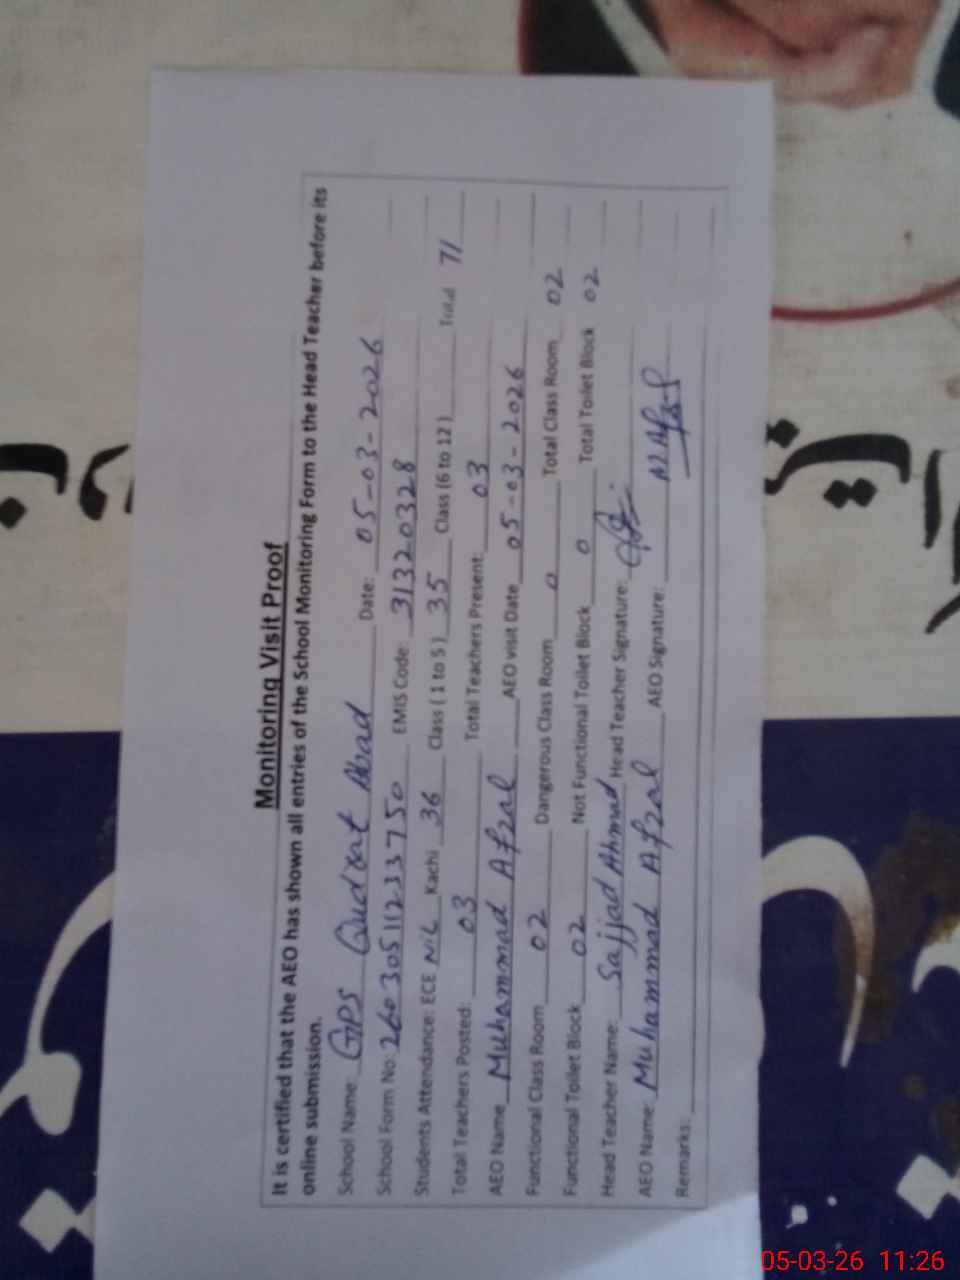 Monitoring Visit Proof
It is certified that the AEO has shown all entries of the School Monitoring Form to the Head Teacher before its
online submission.
School Name GPS Qudrat Abad Date: 05-03-2026
School Form No: 26030511233750 EMIS Code: 31320328
Students Attendance: ECE NiL Kachi 36 Class ( 1 to 5 ) 35 Class (6 to 12 ) Total 71
Total Teachers Posted: 03 Total Teachers Present: 03
AEO Name Muhammad Afzal AEO visit Date 05-03-2026
Functional Class Room 02 Dangerous Class Room 0 Total Class Room 02
Functional Toilet Block 02 Not Functional Toilet Block 0 Total Toilet Block 02
Head Teacher Name: Sajjad Ahmad Head Teacher Signature:
AEO Name: Muhammad Afzal AEO Signature: M Afzal
Remarks:
05-03-26 11:26